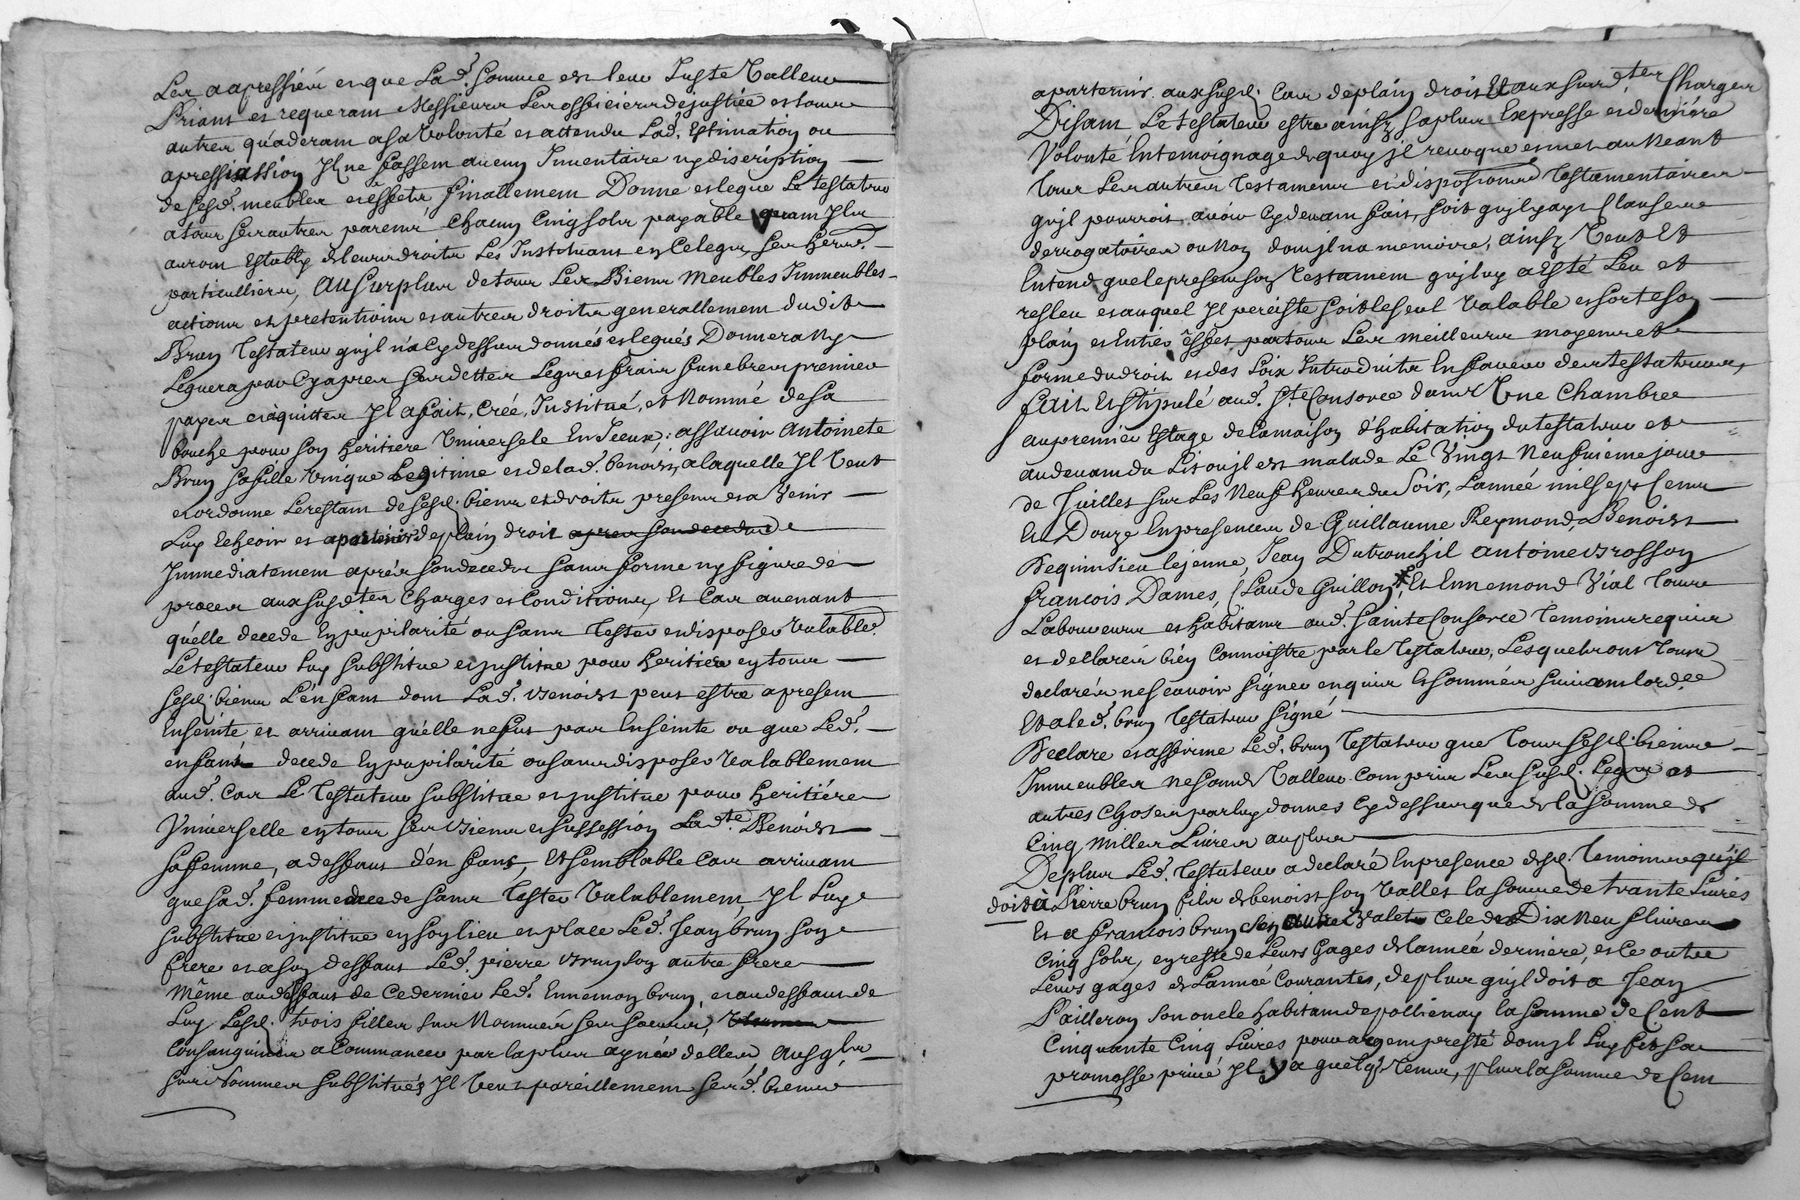 Les aapressiéu et que Lad. somme est leur Juste Valleur
Priant et requerant Messieurs Les officiers de justice et tous
autres quàderant a sa Volonté et attendu Lad. Estimation ou
apressiation Jl ne fassent aucun Inventaire ny discription
de sesd. meubles et effets finallement Donne et legue Le testateur
a tous ses autres parents chacun cinq sols payable quant Jls
auront Estably de leurs droits Les Instituant en ce legs ses herrs.
particulliers, Au surplus de tous Les Biens Meubles Immeubles
actions et pretentions et autres droits generallement dudit
Brun Testateur qujl n'a cy dessus donnés et legués Donnera ny
Leguera par cy apres ses dettes Legs et frais funebres premier
payer et aquitter Jl a fait, créé, Jnstitué, et Nommé de sa
Bouche pour son heritiere Universele En Jceux; assavoir Antoinete
Brun sa fille Vnique Legitime et de lad. benoist, a laquelle Jl Veut
et ordonne Le restant de sesd. biens et droits presents et a Venir
Luy Echeoir et apartenir de plain droit apres son deceds
Jmmediatement aprés son deceds sans forme ny figure de
proces aux susd.tes Charges et Conditions, Et Cas avenant
qu'elle decede En pupilarité ou sans Tester et disposer Valable.
Le testateur Luy substitue et justitue pour heritier en tous
sesd. biens L'enfant dont Lad. Benoist peut estre apresent
Enseinte et arrivant qu'elle ne fut pas Enseinte ou que Led.
enfant decede En pupilarité ou sans disposer Valablement
aud. Cas Le Testateur substitue et justitue pour heritiére
Vniverselle en tous ses Biens et sussession Lad.te Benoist
sa femme, a deffaut d'enfans, Et semblable Cas arrivant
que sad. femme decede sans Tester Valablement Jl Luy
substitue et justitue en son lieu et place Led. Jean brun son
frere et a son deffaut Led. pierre Brun son autre frere
Même au deffaut de Ce dernier Led. Ennemon brun, et au deffaut de
Luy Lesd. trois filles sus Nommées ses soeurs,
Consanguines a Commancer par la plus aynée delles, Ausqls
sus Nommés substitués Jl Veut pareillement sesd. biens
apartenir aususd. Cas de plain droit Et aux susd.tes Charges
Disant Le testateur estre ainsy sa plus Expresse et derniére
Volonté En temoignage de quoy jl revoque et met au Neant
Tous Les autres Testaments et dispositions Testamentaires
qujl pourroit avoir cy devant fait, soit qujl y ayt Clauses
derrogatoires ou Non dont jl na memoire, ainsy Veut Et
Entend que le present son Testament qujl luy a Esté Leu et
releu et auquel Jl perciste soit le seul Valable et sorte son
plain et Entier Effet par tous Les meilleurs moyens et
forme du droit et des Loix Introduits En faveur des testateurs,
fait Et stipulé aud. Ste Consorce dans Vne Chambre
au premier Estage de la maison d'habitation du testateur et
au devant du Lit ou jl est malade Le Vingt Neufuieme jour
de Juillet sur Les Neuf heures du Soir, L'année mil sept Cents
Et Douze En presences de Guillaume Reymond, Benoist
Bequin sieu lejeune, Jean Dutronchil antoine Brosson
francois Dames, Claude Guillon,* Et Ennemond Vial Tous
Laboureurs et habitants aud. Sainte Consorce Temoins requis
et declarés bien Connoistre par le Testateur, Lesquels ont Tous
declarés ne scavoir signer enquis Et sommés suivant lord.ce
Et a led. brun Testateur signé
Declare et affirme Led. brun Testateur que Tous sesd. biens
Immeubles ne sont de Valleur Compris Les susd. Legs et
autres choses par luy donnés cy dessus que de la somme de
Cinq Milles Livres au plus
De plus Led. Testateur a declaré En presence desd. Temoins qu'il
doit à Pierre brun fils de benoist son Vallet la somme de trante Livres
Et a francois brun son autre Valet Cele de Dix Neuf livres
Cinq sols, en reste de Leurs Gages de lannée derniere, et ce outre
Leurs gages de Lannée Courantes, de plus qujl doit a Jean
Pailleron son oncle habitant de pollienay la somme de Cent
Cinquante Cinq Livres pour argent presté dont jl Luy fit sa
promesse privé Jl y a quelqs Tems, plus la somme de Cent